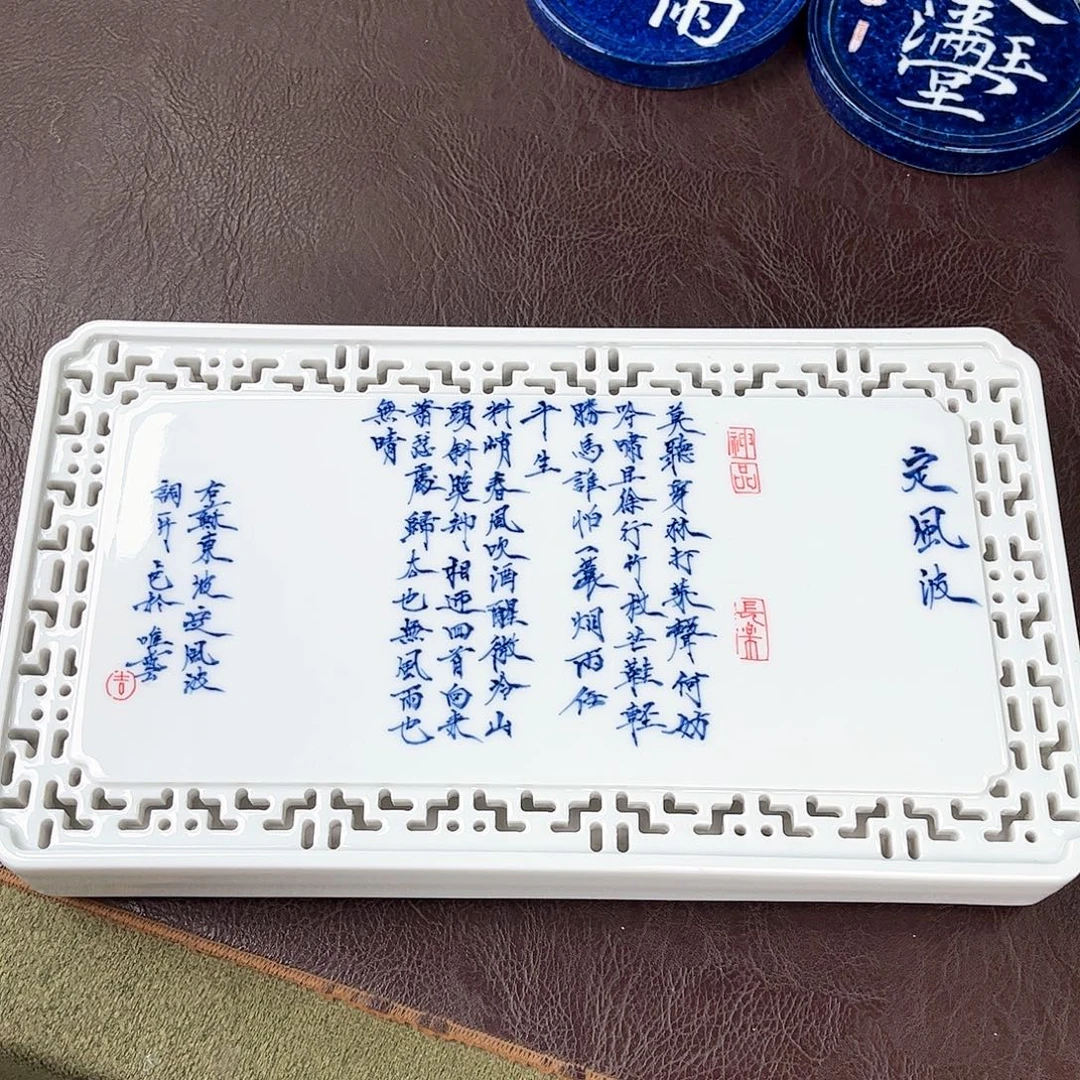 雨
玉
滿堂
定風波
神品
長樂
莫聽穿林打葉聲何妨
吟嘯且徐行竹杖芒鞋輕
勝馬誰怕一蓑烟雨任
平生
料峭春風吹酒醒微冷山
頭斜照却相迎回首向来
蕭瑟處歸去也無風雨也
無晴
右蘇東坡定風波
詞
吉